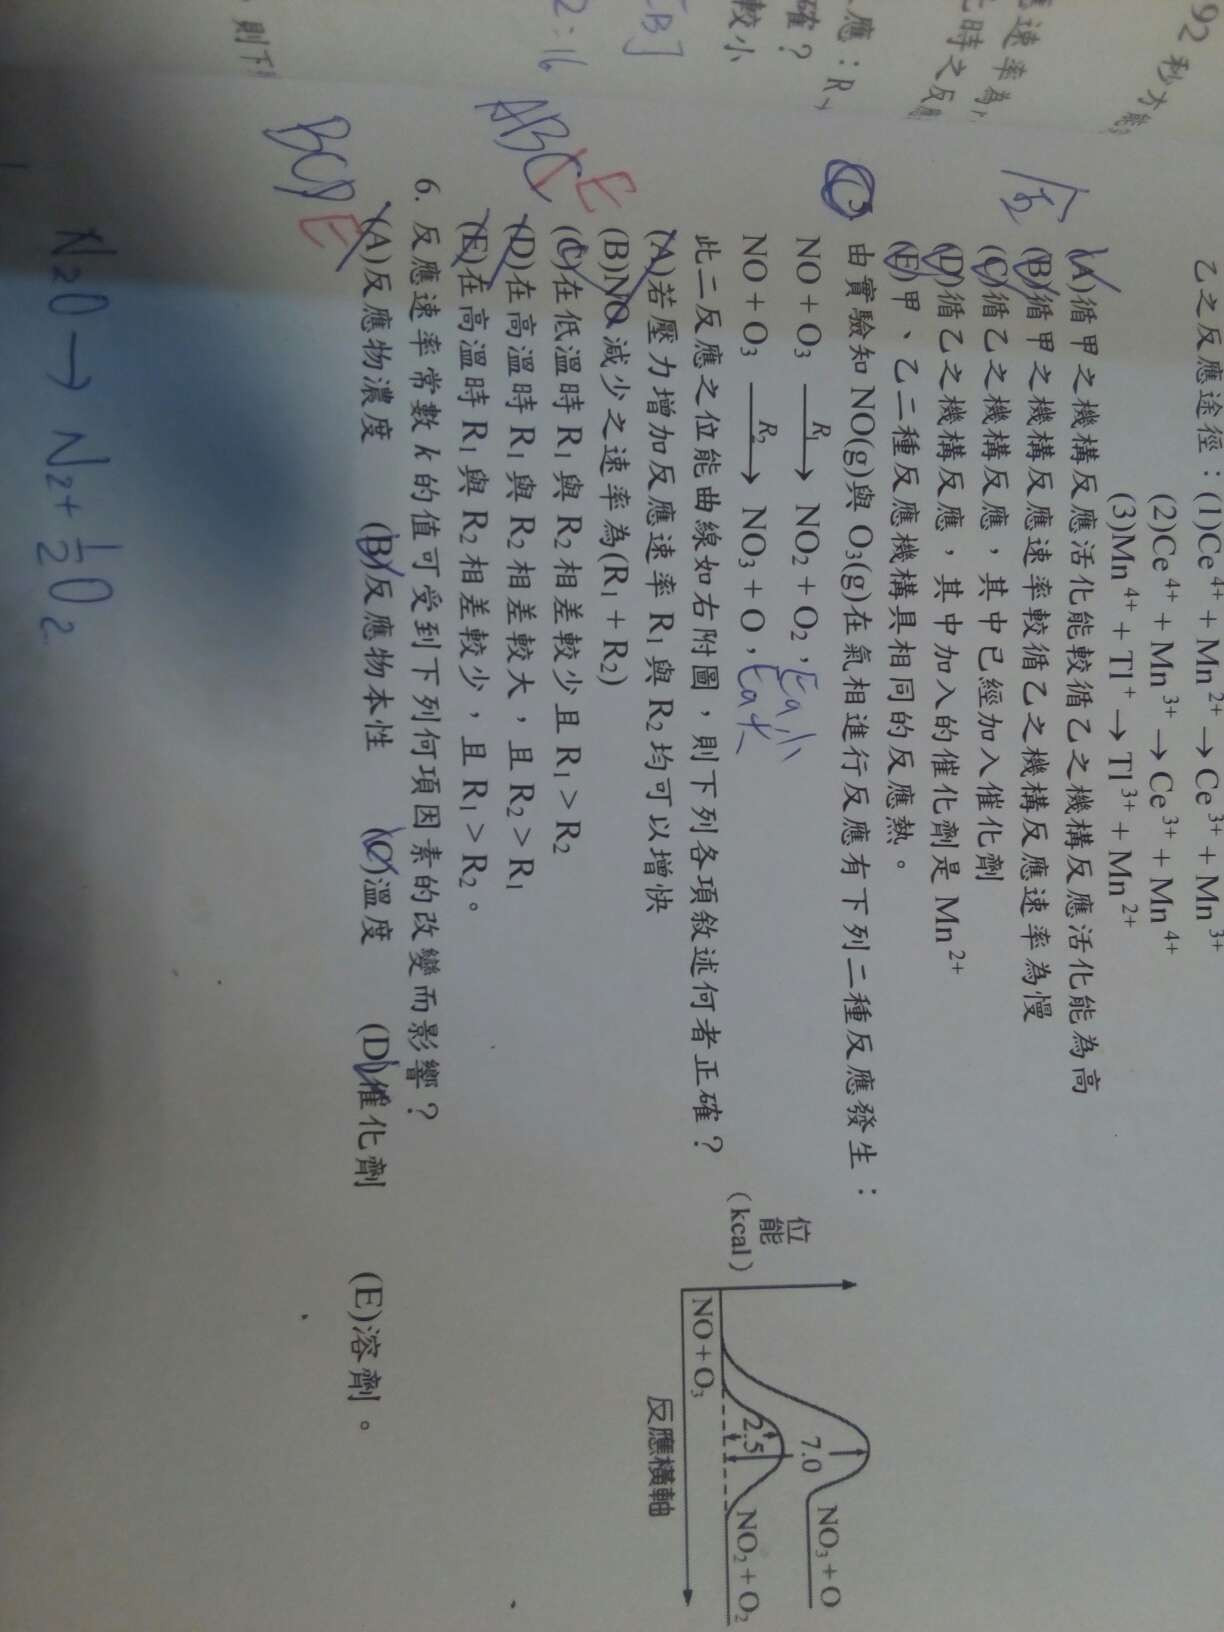 92秒才能
應速率為
時之反應
應：R
確？
較小
B]
2：16
則下
乙之反應途徑：(1)Ce⁴⁺ + Mn²⁺ → Ce³⁺ + Mn³⁺
(2)Ce⁴⁺ + Mn³⁺ → Ce³⁺ + Mn⁴⁺
(3)Mn⁴⁺ + Tl⁺ → Tl³⁺ + Mn²⁺
(A)循甲之機構反應活化能較循乙之機構反應活化能為高
(B)循甲之機構反應速率較循乙之機構反應速率為慢
(C)循乙之機構反應，其中已經加入催化劑
(D)循乙之機構反應，其中加入的催化劑是 Mn²⁺
(E)甲、乙二種反應機構具相同的反應熱。
全
由實驗知 NO(g)與 O₃(g)在氣相進行反應有下列二種反應發生：
NO + O₃ —R₁→ NO₂ + O₂， Ea小
NO + O₃ —R₂→ NO₃ + O， Ea大
此二反應之位能曲線如右附圖，則下列各項敘述何者正確？
(A)若壓力增加反應速率 R₁ 與 R₂ 均可以增快
(B)NO 減少之速率為(R₁ + R₂)
(C)在低溫時 R₁ 與 R₂ 相差較少且 R₁ > R₂
(D)在高溫時 R₁ 與 R₂ 相差較大，且 R₂ > R₁
(E)在高溫時 R₁ 與 R₂ 相差較少，且 R₁ > R₂。
ABC E
位能
(kcal)
7.0
2.5
NO₃ + O
NO₂ + O₂
NO + O₃
反應橫軸
6. 反應速率常數 k 的值可受到下列何項因素的改變而影響？
(A)反應物濃度 (B)反應物本性 (C)溫度 (D)催化劑 (E)溶劑。
BCD E
N₂O → N₂ + ½O₂